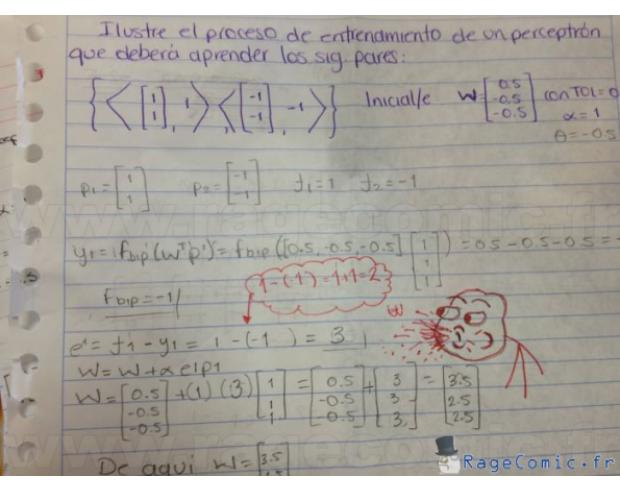 Ilustre el proceso de entrenamiento de un perceptrón
que deberá aprender los sig. pares:
{<[1 1], 1>, <[-1 -1], -1>} Inicial/e W=[0.5 -0.5 -0.5] con TOL=0
α=1
θ=-0.5
P1=[1 1] P2=[-1 -1] t1=1 t2=-1
y1= fbip(wᵀp¹)= fbip([0.5, -0.5, -0.5][1 1 1])=0.5-0.5-0.5=-
fbip=-1
1-(-1)=1+1=2
W
e¹= t1-y1= 1-(-1)= 3
W= W+αe1p1
W=[0.5 -0.5 -0.5]+(1)(3)[1 1 1]=[0.5 -0.5 -0.5]+[3 3 3]=[3.5 2.5 2.5]
De aqui W=[3.5
RageComic.fr